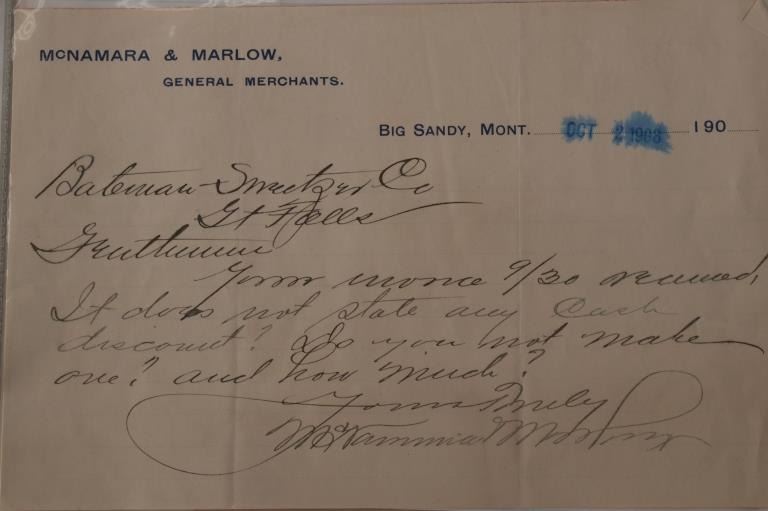 McNAMARA & MARLOW,
GENERAL MERCHANTS.
BIG SANDY, MONT. OCT 2 1908 190
Bateman-Switzer Co
Gt Falls
Gentlemen
Your invoice 9/30 received,
It does not state any Cash
discount? Do you not make
one? and how much?
Yours Truly
McNamara & Marlow